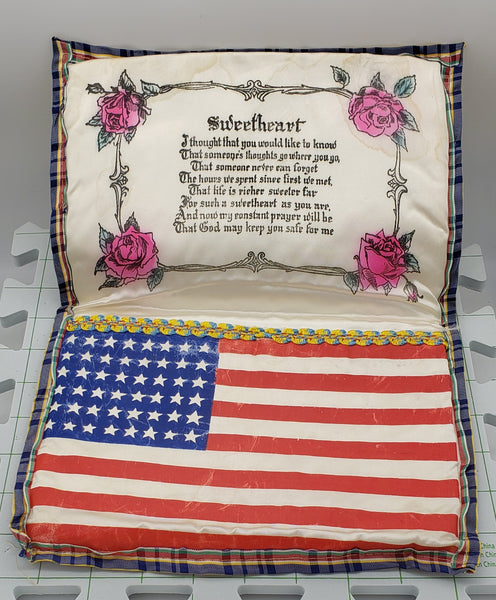 Sweetheart
I thought that you would like to know
That someone's thoughts go where you go,
That someone never can forget
The hours we spent since first we met,
That life is richer sweeter far
For such a sweetheart as you are,
And now my constant prayer will be
That God may keep you safe for me
China
in China
n China